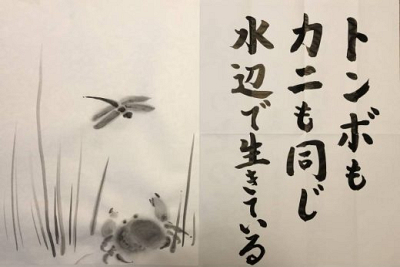 トンボも
カニも同じ
水辺で生きている